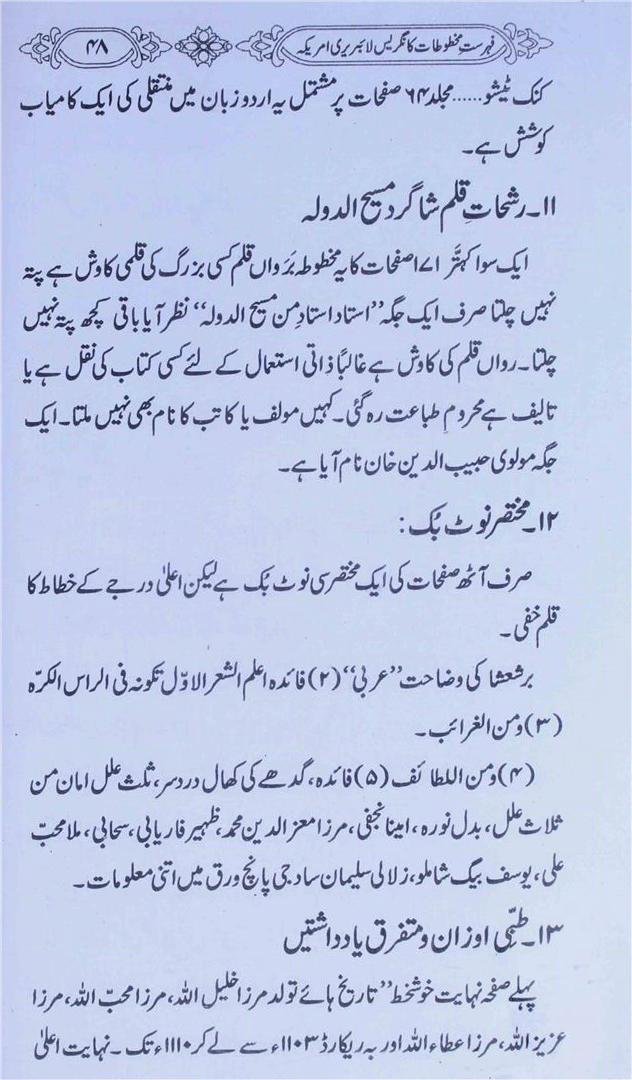 فہرستِ مخطوطات کانگریس لائبریری امریکہ
۴۸
کنک ٹیشو......مجلد ۶۴ صفحات پر مشتمل یہ اردو زبان میں منتقلی کی ایک کامیاب
کوشش ہے۔
۱۱۔رشحاتِ قلم شاگرد مسیح الدولہ
ایک سو اکہتَّر ۱۷۱صفحات کا یہ مخطوطہ بَرَواں قلم کسی بزرگ کی قلمی کاوش ہے پتہ
نہیں چلتا صرف ایک جگہ ”استاد استادِ من مسیح الدولہ“ نظر آیا باقی کچھ پتہ نہیں
چلتا۔رواں قلم کی کاوش ہے غالباً ذاتی استعمال کے لئے کسی کتاب کی نقل ہے یا
تالیف ہے محرومِ طباعت رہ گئی۔کہیں مولف یا کاتب کا نام بھی نہیں ملتا۔ایک
جگہ مولوی حبیب الدین خان نام آیا ہے۔
۱۲۔مختصر نوٹ بُک:
صرف آٹھ صفحات کی ایک مختصر سی نوٹ بُک ہے لیکن اعلیٰ درجے کے خطاط کا
قلم خفی۔
برشعشا کی وضاحت ”عربی“ (۲) فائدہ اعلم الشعر الاوّل تکونہ فی الراس الکرّہ
(۳) ومن الغرائب۔
(۴) ومن اللطائف (۵) فائدہ، گدھے کی کھال دردسر، ثلث علل امان من
ثلاث علل، بدل نورہ، امینا نجفی، مرزا معز الدین محمد، ظہیر فاریابی، سحابی، ملا محبّ
علی، یوسف بیگ شاملو، زلالی سلیمان ساد جی پانچ ورق میں اتنی معلومات۔
۱۳۔طبّی اوزان و متفرق یادداشتیں
پہلے صفحہ نہایت خوشخط ”تاریخ ہائے تولد مرزا خلیل اللہ، مرزا محبّ اللہ، مرزا
عزیز اللہ، مرزا عطاء اللہ اور یہ ریکارڈ ۱۱۰۳ء سے لے کر ۱۱۱۰ء تک۔نہایت اعلیٰ